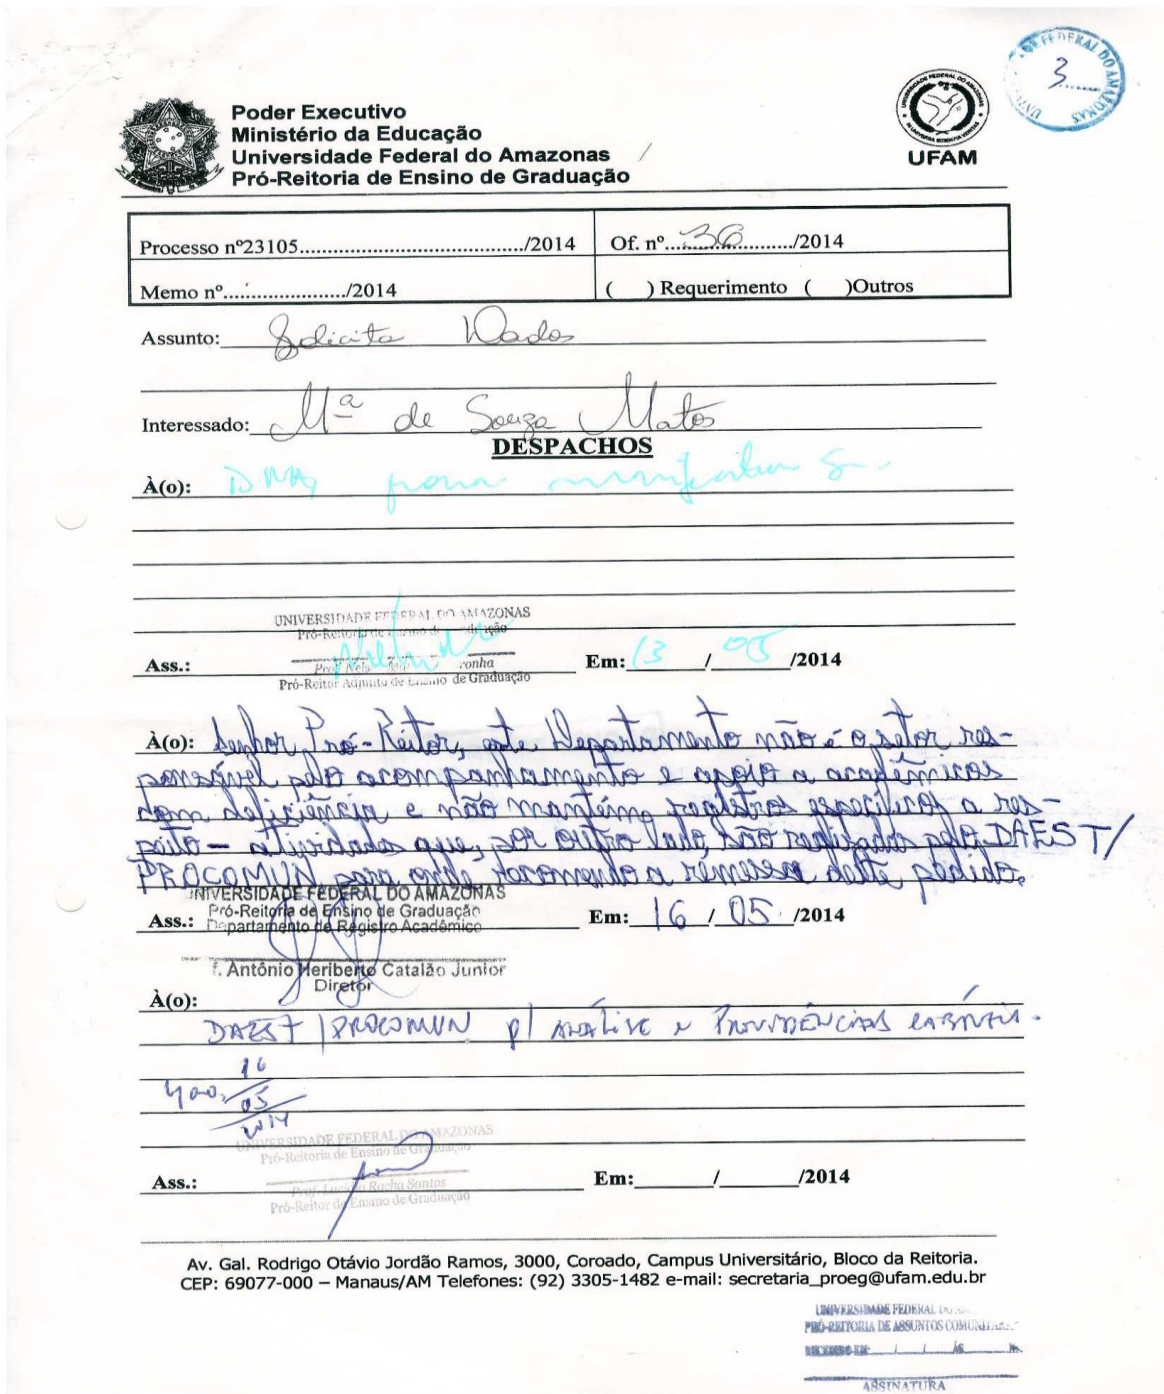 UNIVERSIDADE FEDERAL DO AMAZONAS
3
Poder Executivo
Ministério da Educação
Universidade Federal do Amazonas
Pró-Reitoria de Ensino de Graduação
UFAM
Processo nº23105...................................../2014
Of. nº...36...................../2014
Memo nº....................../2014
( ) Requerimento ( )Outros
Assunto: Solicita Dados
Interessado: Mª de Souza Matos
DESPACHOS
À(o): para
UNIVERSIDADE FEDERAL DO AMAZONAS
Pró-Reitoria de Ensino de Graduação
Pró-Reitor Adjunto de Ensino de Graduação
Ass.: Em: 13 / 05 /2014
À(o): Senhor Pró-Reitor, este Departamento não é o setor res-
ponsável pelo acompanhamento e apoio a acadêmicos
com deficiência e não mantém registros específicos a res-
peito – atividades que, por outro lado, são pelo DAEST/
PROCOMUN, para onde recomendo a remessa deste pedido.
UNIVERSIDADE FEDERAL DO AMAZONAS
Pró-Reitoria de Ensino de Graduação
Departamento de Registro Acadêmico
Ass.: Em: 16 / 05 /2014
Antônio Heriberto Catalão Junior
Diretor
À(o):
DAEST / PROCOMUN p/ análise e providências cabíveis.
16
05
2014
UNIVERSIDADE FEDERAL DO AMAZONAS
Pró-Reitoria de Ensino de Graduação
Ass.: Em: / /2014
Prof. Rocha Santos
Pró-Reitor de Ensino de Graduação
Av. Gal. Rodrigo Otávio Jordão Ramos, 3000, Coroado, Campus Universitário, Bloco da Reitoria.
CEP: 69077-000 – Manaus/AM Telefones: (92) 3305-1482 e-mail: secretaria_proeg@ufam.edu.br
UNIVERSIDADE FEDERAL DO
PRÓ-REITORIA DE ASSUNTOS COMUNITÁRIOS
RECEBIDO EM: / /
ASSINATURA